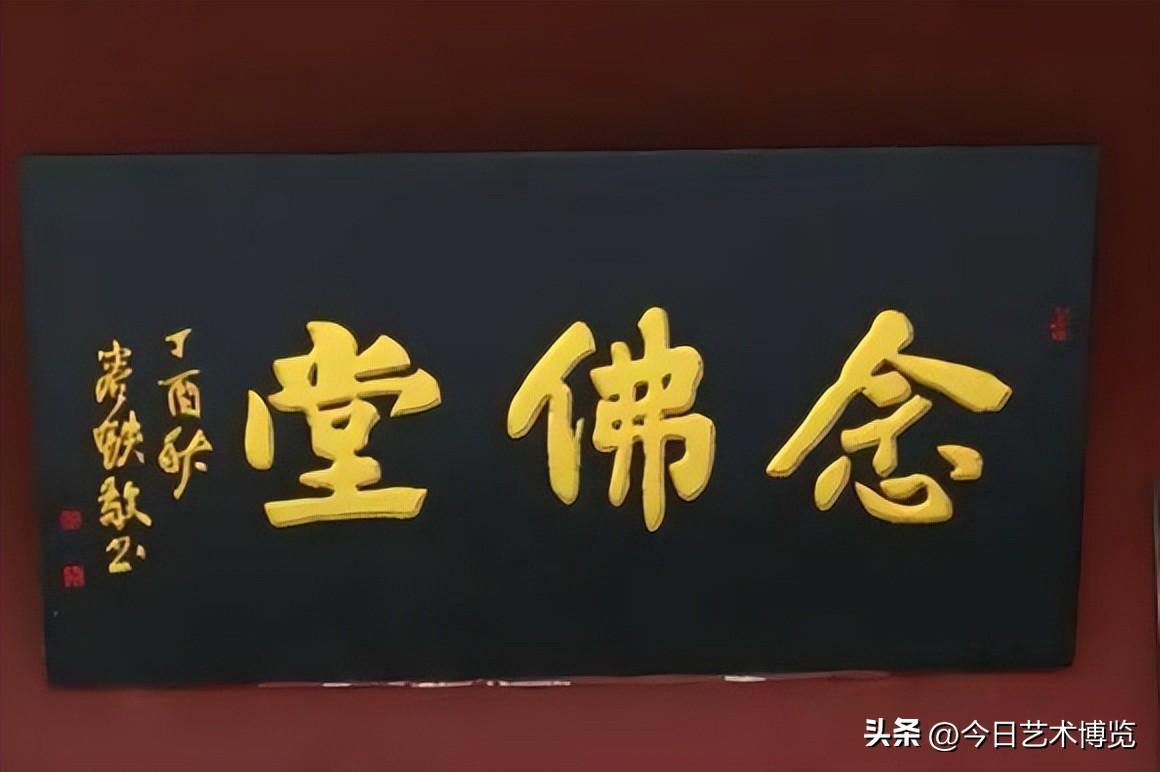 念佛堂
丁酉秋
铁敬书
头条 @今日艺术博览